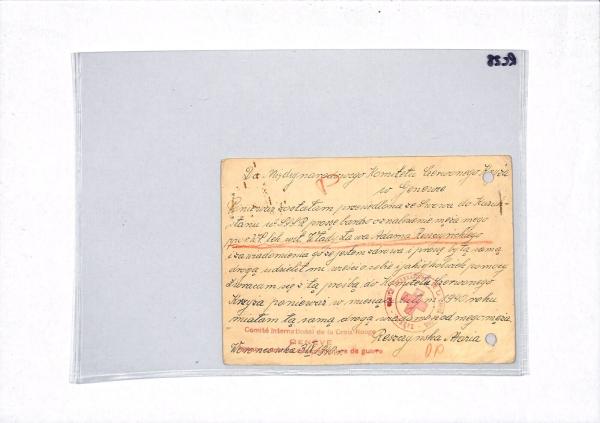 Do Międzynarodowego Komitetu Czerwonego Krzyża
w Genewie
Ponieważ zostałam przesiedlona ze Lwowa do
w SSSR proszę bardzo o znalezienie męża mego
por. lek. wet. Władysława Adama Reszczyńskiego
i zawiadomienia go że jestem zdrowa i proszę by tą samą
drogą udzielił mi wieści o sobie i jakiejkolwiek pomocy
Zwracam się z tą prośbą do Komitetu Czerwonego
Krzyża ponieważ w miesiącu 1940 roku
miałam tą samą drogą wiadomość od mego męża
Comité International de la Croix-Rouge
GENÈVE
de guerre
Reszczyńska Maria